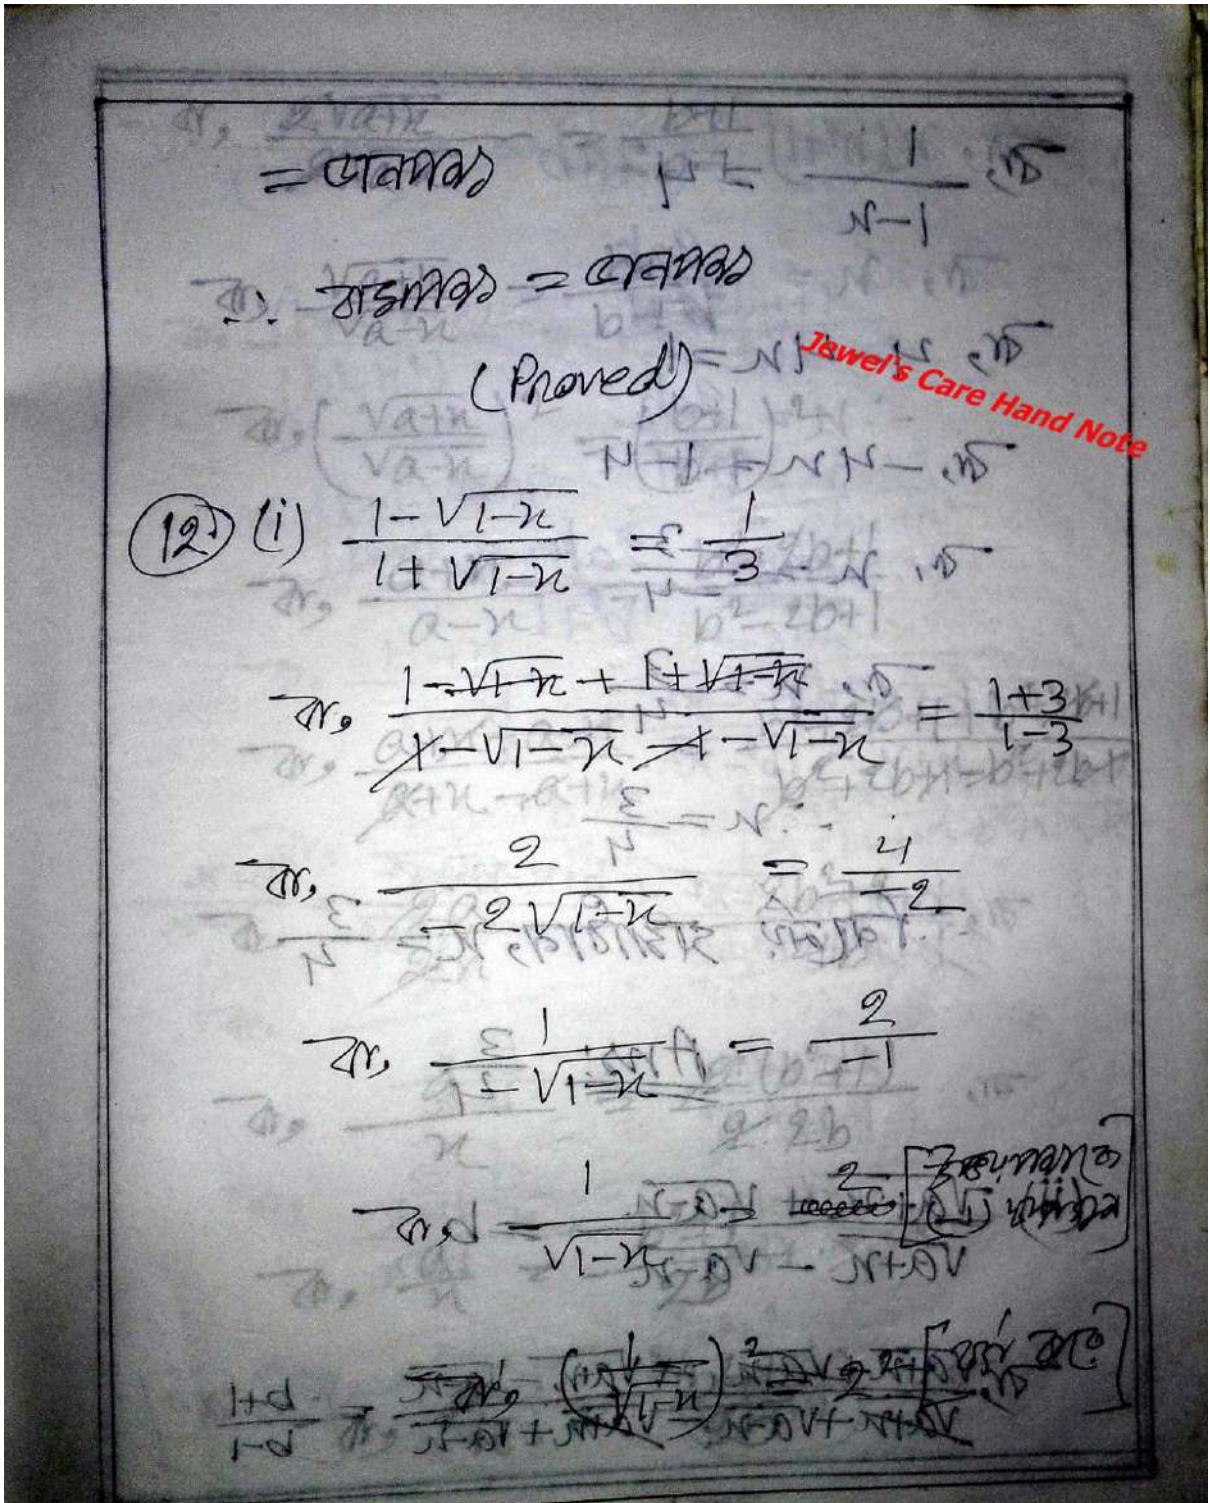 = ডানপক্ষ
∴ বামপক্ষ = ডানপক্ষ
(Proved)
Jewel's Care Hand Note
12. (i) (1-√(1-x))/(1+√(1-x)) = 1/3
বা, (1-√(1-x) + 1+√(1-x))/(1-√(1-x) -1-√(1-x)) = (1+3)/(1-3)
বা, 2/(-2√(1-x)) = 4/(-2)
বা, 1/(-√(1-x)) = 2/(-1)
বা, 1/√(1-x) = 2
বা, (1/√(1-x))² = 2² [বর্গ করে]